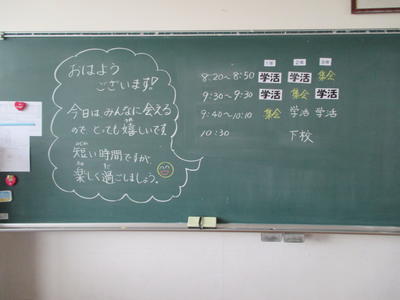 おはよう
ございます!
今日はみんなに会える
ので、とっても嬉しいです。
短い時間ですが、
楽しく過ごしましょう。
1年 2年 3年
8:20～8:50 学活 学活 集会
9:30～9:30 学活 集会 学活
9:40～10:10 集会 学活 学活
10:30 下校